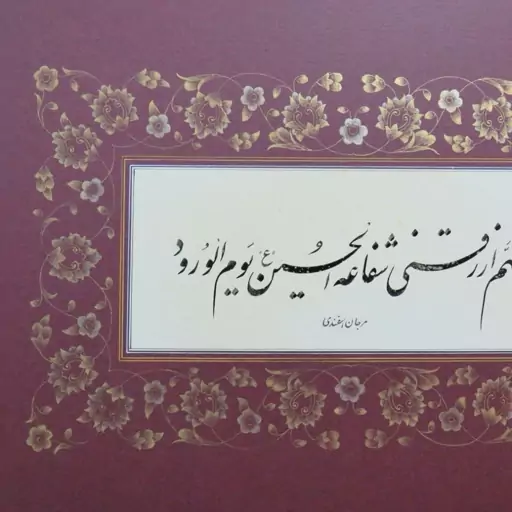 هم ارزقنی شفاعه الحسین (ع) یوم الورود
مرجان اسفندی